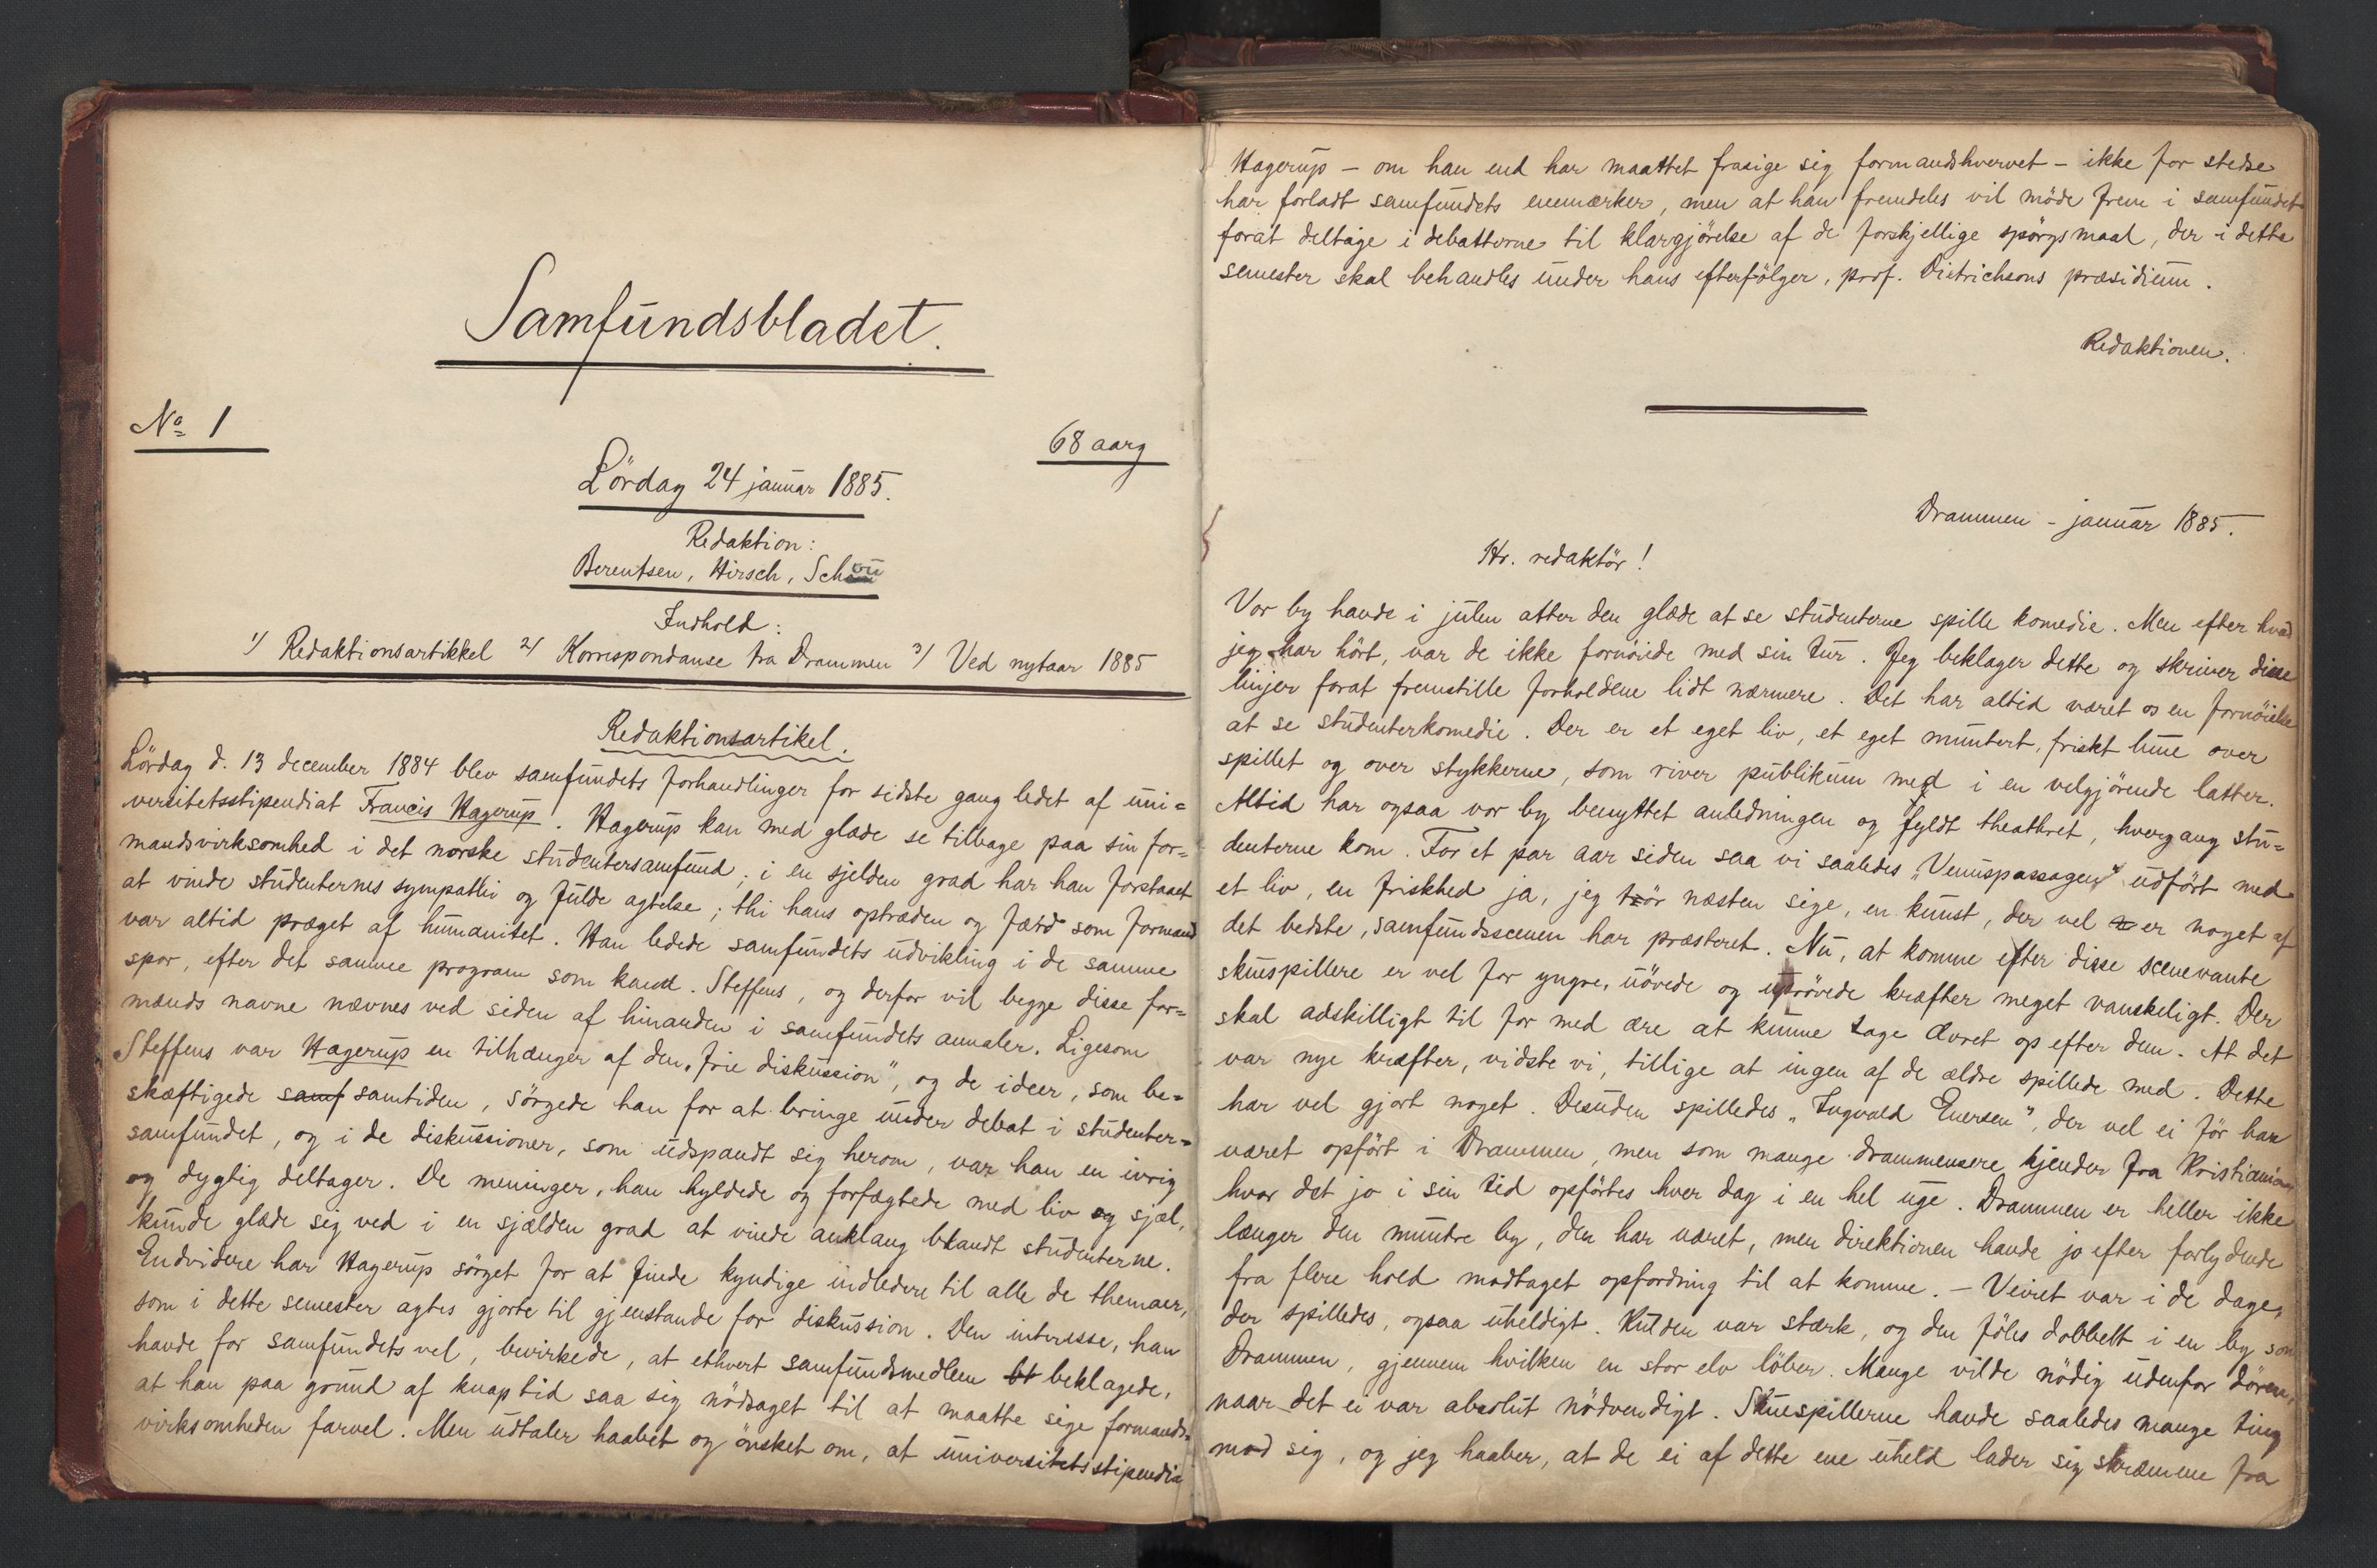 Samfundsbladet.
No 1
68 aarg
Lördag 24 januar 1885.
Redaktion:
Berentsen, Hirsch, Schøu
Indhold:
1) Redaktionsartikkel 2) Korrespondanse fra Drammen 3) Ved nytaar 1885
Redaktionsartikel.
Lördag d. 13 december 1884 blev samfundets forhandlinger for sidste gang ledet af uni=
versitetsstipendiat Francis Hagerup. Hagerup kan med glæde se tilbage paa sin for=
mandsvirksomhed i det norske studentersamfund; i en sjelden grad har han forstaaet
at vinde studenternes sympathi og fulde agtelse; thi hans optræden og færd som formand
var altid præget af humanitet. Han ledede samfundets udvikling i de samme
spor, efter det samme program som kand. Steffens, og derfor vil begge disse for=
mænds navne nævnes ved siden af hinanden i samfundets annaler. Ligesom
Steffens var Hagerup en tilhænger af den „frie diskussion”, og de ideer, som be=
skæftigede samf samtiden, sörgede han for at bringe under debat i studenter=
samfundet, og i de diskussioner, som udspandt sig herom, var han en ivrig
og dygtig deltager. De meninger, han hyldede og forfægtede med liv og sjæl,
kunde glæde sig ved i en sjælden grad at vinde anklang blandt studenterne.
Endvidere har Hagerup sörget for at finde kyndige indledere til alle de themaer,
som i dette semester agtes gjorte til gjenstande for diskussion. Den interesse, han
havde for samfundets vel, bevirkede, at ethvert samfundsmedlem bt beklagede,
at han paa grund af knap tid saa sig nödsaget til at maatte sige formands=
virksomheden farvel. Men udtaler haabet og önsket om, at universitetsstipendia
Hagerup – om han end har maattet frasige sig formandshvervet – ikke for stedse
har forladt samfundets enemærker, men at han fremdeles vil möde frem i samfundet
forat deltage i debatterne til klargjörelse af de forskjellige spörgsmaal, der i dette
semester skal behandles under hans efterfölger, prof. Dietrichsons præsidium.
Redaktionen.
Drammen – januar 1885.
Hr. redaktör!
Vor by havde i julen atter den glæde at se studenterne spille komedie. Men efter hvad
jeg har hört, var de ikke fornöiede med sin tur. Jeg beklager dette og skriver disse
linjer forat fremstille forholdene lidt nærmere. Det har altid været os en fornöielse
at se studenterkomedie. Der er et eget liv, et eget muntert, friskt lune over
spillet og over stykkerne, som river publikum med i en velgjörende latter.
Altid har ogsaa vor by benyttet anledningen og fyldt theathret, hvergang stu=
denterne kom. For et par aar siden saa vi saaledes „Venuspassagen” udfört med
et liv, en friskhed ja, jeg tör næsten sige, en kunst, der vel er noget af
det bedste, samfundsscenen har præsteret. Nu, at komme efter disse scenevante
skuespillere er vel for yngre, uövede og uprövede kræfter meget vanskeligt. Der
skal adskilligt til for med ære at kunne tage Ævret op efter dem. At det
var nye kræfter, vidste vi, tillige at ingen af de ældre spillede med. Dette
har vel gjort noget. Desuden spilledes „Ingvald Enersen”, der vel ei för har
været opfört i Drammen, men som mange drammensere kjender fra Kristiania,
hvor det jo i sin tid opförtes hver dag i en hel uge. Drammen er heller ikke
længer den muntre by, den har været, men direktionen havde jo efter forlydende
fra flere hold modtaget opfordring til at komme. – Veiret var i de dage,
der spilledes, ogsaa uheldigt. Kulden var stærk, og den föles dobbelt i en by som
Drammen, gjennem hvilken en stor elv löber. Mange vilde nödig udenfor dören,
naar det ei var absolut nödvendigt. Skuespillerne havde saaledes mange ting
mod sig, og jeg haaber, at de ei af dette ene uheld lader sig skræmme fra